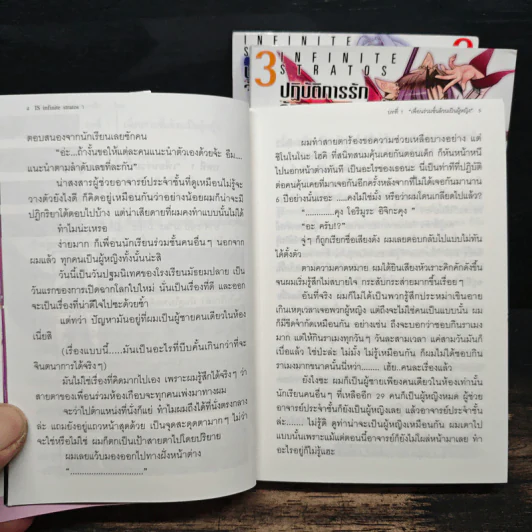 INFINITE
INFINITE
STRATOS
3
ปฏิบัติการรัก
8 IS infinite stratos
ตอบสนองจากนักเรียนเลยซักคน
"อ่ะ...ถ้างั้นขอให้แต่ละคนแนะนำตัวเองด้วยจ้ะ อืม...
แนะนำตามลำดับเลขที่ละกัน"
น่าสงสารผู้ช่วยอาจารย์ประจำชั้นที่ดูเหมือนไม่รู้จะ
วางตัวยังไงดี ก็คิดอยู่เหมือนกันว่าอย่างน้อยผมก็น่าจะมี
ปฏิกิริยาโต้ตอบไปบ้าง แต่น่าเสียดายที่ผมคงทำแบบนั้นไม่ได้
ทำไมน่ะเหรอ
ง่ายมาก ก็เพื่อนนักเรียนร่วมชั้นคนอื่นๆ นอกจาก
ผมแล้ว ทุกคนเป็นผู้หญิงทั้งนั้นน่ะสิ
วันนี้เป็นวันปฐมนิเทศของโรงเรียนมัธยมปลาย เป็น
วันแรกของการเปิดฉากโลกใบใหม่ นั่นเป็นเรื่องที่ดี และออก
จะเป็นเรื่องที่น่าดีใจไปซะด้วยซ้ำ
แต่ทว่า ปัญหามันอยู่ที่ผมเป็นผู้ชายคนเดียวในห้อง
เนี่ยสิ
(เรื่องแบบนี้.....มันเป็นอะไรที่บีบคั้นเกินกว่าที่จะ
จินตนาการได้จริงๆ)
มันไม่ใช่เรื่องที่คิดมากไปเอง เพราะผมรู้สึกได้จริงๆ ว่า
สายตาของเพื่อนร่วมห้องเกือบจะทุกคนเพ่งมาทางผม
จะว่าไปตำแหน่งที่นั่งก็แย่ ทำไมผมถึงได้ที่นั่งตรงกลาง
ล่ะ แถมยังอยู่แถวหน้าสุดด้วย เป็นจุดสะดุดตามากๆ ไม่ว่า
จะใช่หรือไม่ใช่ ผมก็ตกเป็นเป้าสายตาไปโดยปริยาย
ผมเลยแว้บมองออกไปทางฝั่งหน้าต่าง
"..........................."
บทที่ 1 "เพื่อนร่วมชั้นล้วนเป็นผู้หญิง" 9
ผมทำสายตาร้องขอความช่วยเหลือบางอย่าง แต่
ชิโนโนโนะ โฮคิ ที่สนิทสนมคุ้นเคยกันตอนเด็ก ก็หันหน้าหนี
ไปนอกหน้าต่างทันที เป็นอะไรของเธอนะ นี่เป็นท่าทีที่ปฏิบัติ
ต่อคนคุ้นเคยที่มาเจอกันอีกครั้งหลังจากที่ไม่ได้เจอกันมานาน
6 ปีอย่างนั้นเรอะ ....คงไม่ใช่มั้ง หรือว่าผมโดนเกลียดไปแล้ว?
"............คุง โอริมุระ อิจิกะคุง"
"อะ ครับ!?"
จู่ๆ ก็ถูกเรียกชื่อเสียงดัง ผมเลยตอบกลับไปแบบไม่ทัน
ได้ตั้งตัว
ตามความคาดหมาย ผมได้ยินเสียงหัวเราะคิกคักดังขึ้น
จนผมเริ่มรู้สึกไม่สบายใจ กระสับกระส่ายมากขึ้นเรื่อยๆ
อันที่จริง ผมก็ไม่ได้เป็นพวกรู้สึกประหม่าเขินอาย
เกินเหตุเวลาเจอพวกผู้หญิง แต่ถึงจะไม่ใช่คนเป็นแบบนั้น ผม
ก็มีขีดจำกัดเหมือนกัน อย่างเช่น ถึงจะบอกว่าชอบกินราเมง
มาก แต่ให้กินราเมงทุกวันๆ วันละสามเวลา แค่สามวันมันก็
เบื่อแล้ว ใช่ปะล่ะ ไม่มั้ง ไม่รู้เหมือนกัน ก็ผมไม่ได้ชอบกิน
ราเมงมากขนาดนั้นนี่หว่า........ เฮ้ย..คนละเรื่องแล้ว
ยังไงซะ ผมก็เป็นผู้ชายเพียงคนเดียวในห้องเท่านั้น
นักเรียนคนอื่นๆ ที่เหลืออีก 29 คนก็เป็นผู้หญิงหมด ผู้ช่วย
อาจารย์ประจำชั้นก็ยังเป็นผู้หญิงเลย แล้วอาจารย์ประจำชั้น
ล่ะ....... ไม่รู้ดิ ดูท่าน่าจะเป็นผู้หญิงเหมือนกัน ผมเดาไป
แบบนั้นเพราะแม้แต่ตอนนี้อาจารย์ก็ยังไม่โผล่หน้ามาเลย ทำ
อะไรอยู่ก็ไม่รู้แฮะ